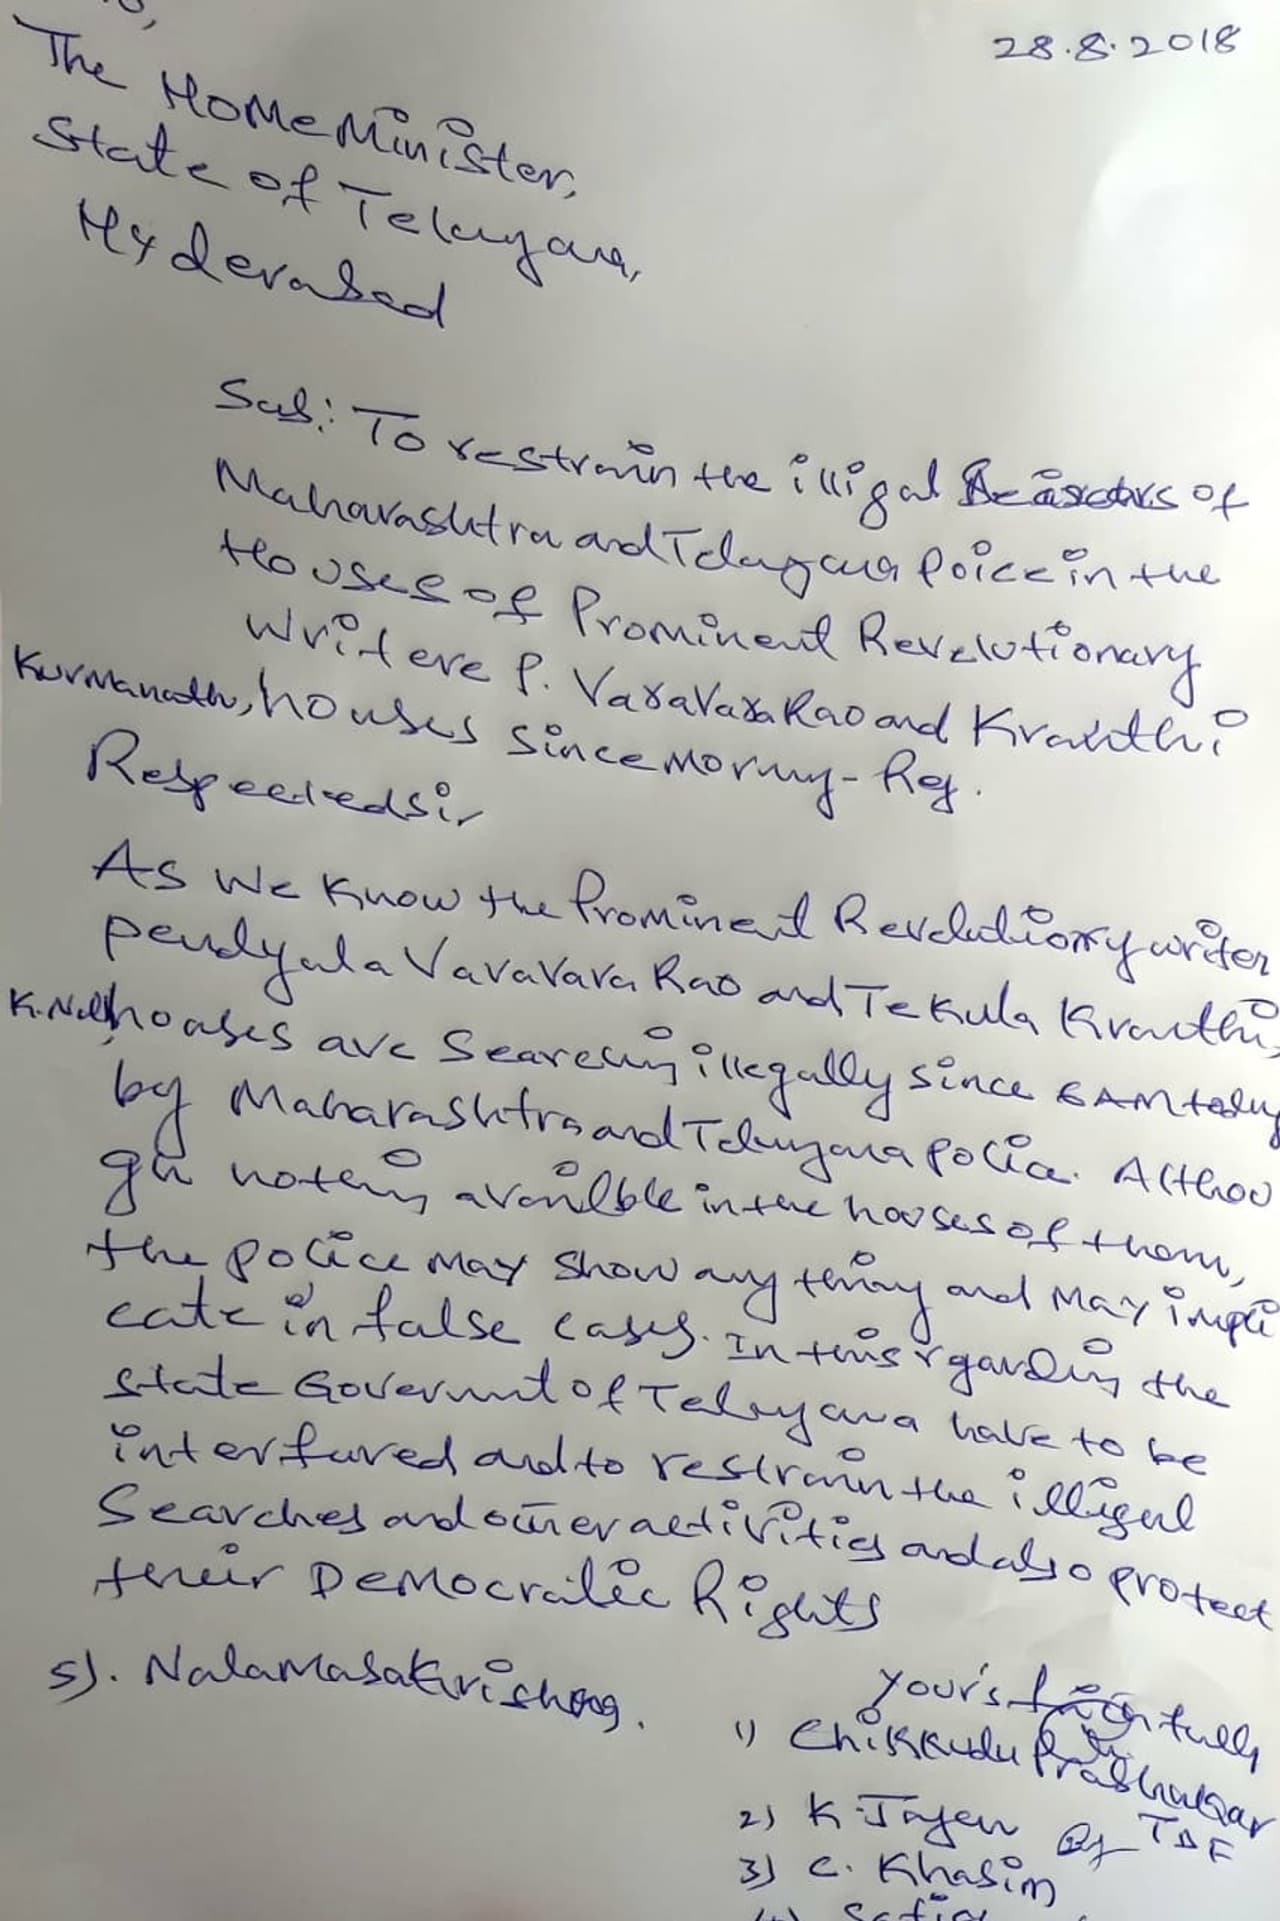 28.8.2018
The Home Minister,
State of Telangana,
Hyderabad
Sub: To restrain the illigal of
Maharashtra and Telangana Poice in the
Houses of Prominent Revolutionary
Writers P. VaraVara Rao and Kranthi
Kurmanath, houses since Morning - Reg.
Respected sir
As We Know the Prominent Revolutionary writer
Pendyala Varavara Rao and Tekula Kranthi,
houses are Searching illegally since 6 AM today
by Maharashtra and Telangana Police. Althou
gh nothing availble in the houses of them,
the police May Show any thing and May impli
cate in false cases. In this rgarding the
state Government of Telangana have to be
interfured and to restrain the illigal
Searches and other activities and also protect
their Democratic Rights
Your's faithfully
5). Nalamasa Krishna.
1) Chikkudu Prabhakar
2) K. Jagan of TDF
3) C. Khasim